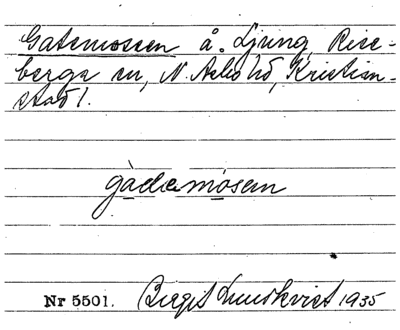 Gatemossen å. Ljung, Rise-
berga sn, N. Åsbo hd, Kristian-
stad l.
gàdemósen
Nr 5501. Birgit Lundkvist 1935